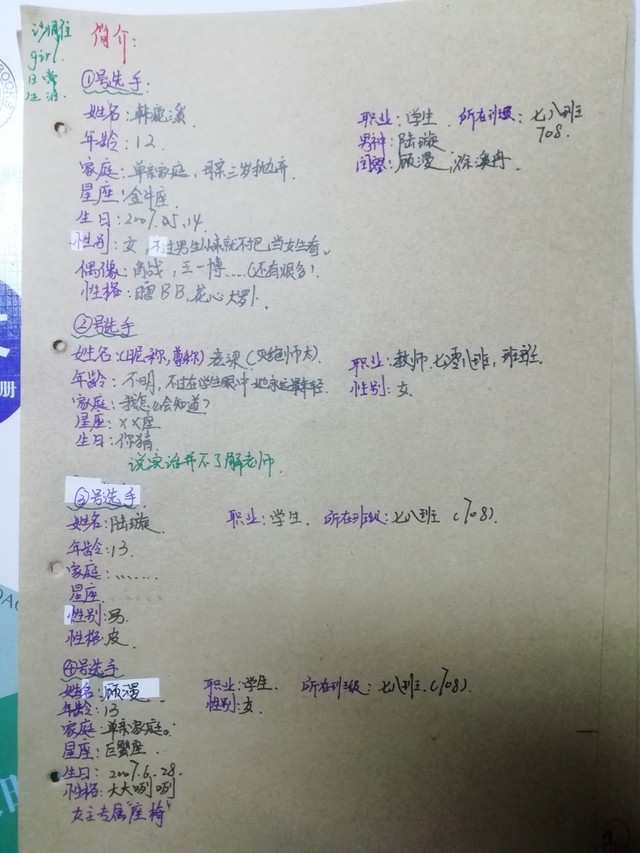 沙雕
girl
日常
生活
简介:
①号选手:
姓名:韩
职业:学生. 所在班级:七八班
708.
年龄:12.
男神:陆璇
家庭:单亲家庭,母亲三岁抛弃.
闺蜜:顾漫,徐溪冉.
星座:金牛座.
生日:2007.05.14.
性别:女,不过男生从来就不把他当女生看。
偶像:肖战,王一博……(还有很多)
性格:瞎BB,花心大萝卜.
②号选手
姓名:(昵称,尊称)(灭绝师太)
职业:教师.七零八班,班主任
年龄:不明,不过在学生眼中她永远最年轻
性别:女
家庭:我怎么会知道?
星座:××座
生日:你猜
说实话并不了解老师.
③号选手
姓名:陆璇
职业:学生. 所在班级:七八班(708).
年龄:13.
家庭:.......
星座......
性别:男
性格:皮
④号选手
姓名:顾漫
职业:学生. 所在班级:七八班.(708).
年龄:13
性别:女.
家庭:单亲家庭。
星座:巨蟹座.
生日:2007.6.28.
性格:大大咧咧
女主专属"座椅"